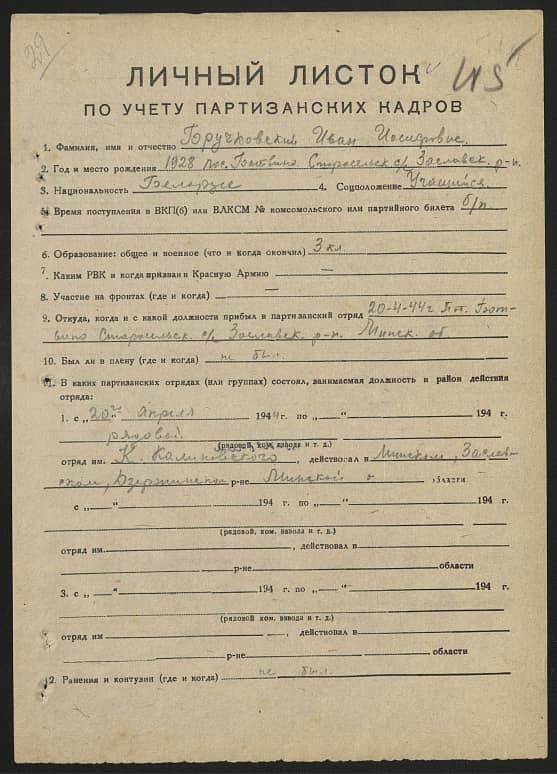 29
ЛИЧНЫЙ ЛИСТОК
ПО УЧЕТУ ПАРТИЗАНСКИХ КАДРОВ
1. Фамилия, имя и отчество Бручковский Иван Иосифович
2. Год и место рождения 1928 пос. Ботвино Старосельск с/с Заславск. р-н.
3. Национальность Беларусс 4. Соцположение Учащийся.
5. Время поступления в ВКП(б) или ВЛКСМ № комсомольского или партийного билета б/п
6. Образование: общее и военное (что и когда окончил) 3 кл
7. Каким РВК и когда призван в Красную Армию —
8. Участие на фронтах (где и когда) —
9. Откуда, когда и с какой должности прибыл в партизанский отряд 20-4-44г Бот-
вино Старосельск. с/с Заславск. р-н. Минск. об
10. Был ли в плену (где и когда) не был.
11. В каких партизанских отрядах (или группах) состоял, занимаемая должность и район действия
отряда:
1. с „20" апреля 1944 г. по „ — " 194 г.
рядовой
(рядовой, ком. взвода и т. д.)
отряд им. К. Калиновского, действовал в Минском, Заслав-
ском, Дзержинском р-не Минской о области
с „ — " 194 г. по „ — " 194 г.
(рядовой, ком. взвода и т. д.)
отряд им. — , действовал в —
р-не — области
3. с „ — " 194 г. по „ — " 194 г.
(рядовой, ком. взвода и т. д.)
отряд им — , действовал в
р-не — области
2. Ранения и контузии (где и когда) не был.